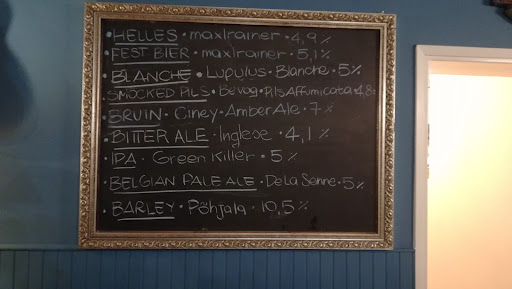 • HELLES • maxlrainer • 4,9%
• FEST BIER • maxlrainer • 5,1%
• BLANCHE • Lupulus • Blanche • 5%
• SMOCKED PILS • Bevog • Pils Affumicata • 4,8%
• BRUIN • Ciney • Amber Ale • 7%
• BITTER ALE • Inglese • 4,1%
• IPA • Green Killer • 5%
• BELGIAN PALE ALE • De La Senne • 5%
• BARLEY • Põhjala • 10,5%